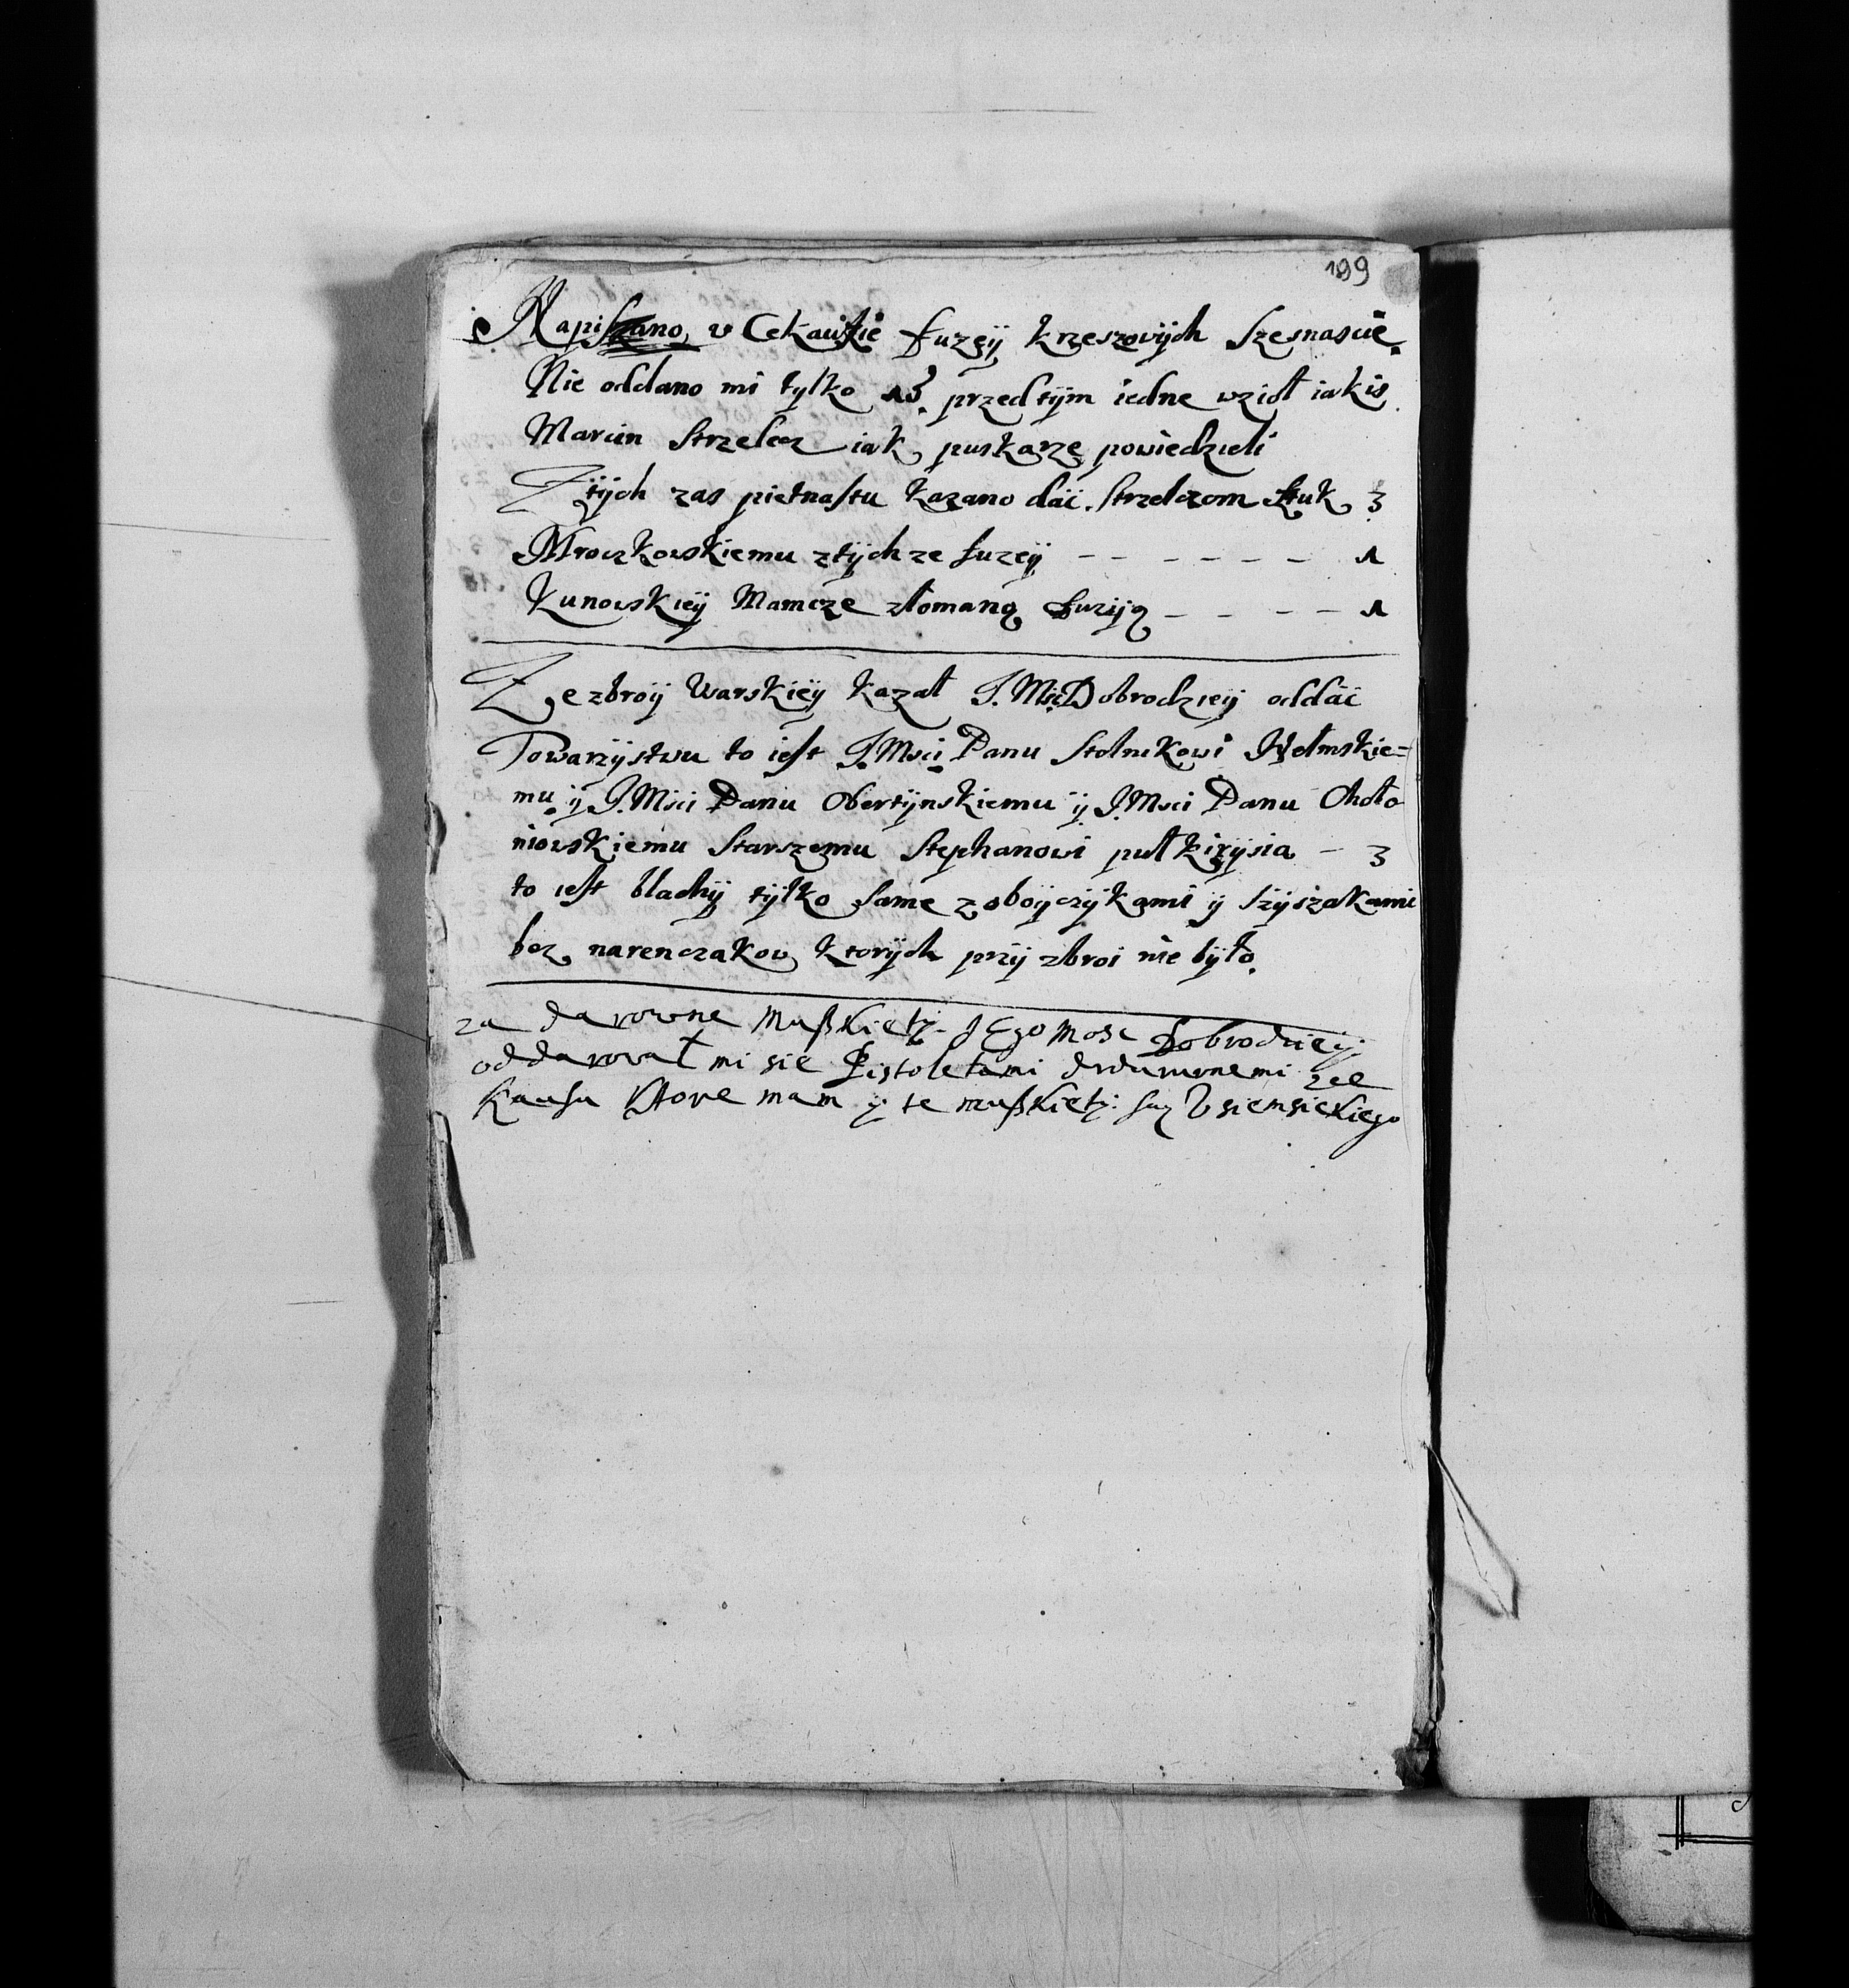 199
Napisano w Cekauzie fuzyy krzeszowych szesnascie.
Nie oddano mi tylko 15. przed tym iedne wzioł iakis
Marcin Strzelec iak puskarze powiedzieli
Z tych zas pietnastu kazano dac strzelcom sztuk 3
Mroczkowskiemu z tych ze fuzey – – – – – – 1
Kunowskiey Mamcze złomaną fuzyią – – – – 1
Ze zbroy Warskiey kazał J. Mśći Dobrodziey oddac
Towarzystwu to iest J. Mści Panu Stolnikowi
mu y J. Mści Panu Obertynskiemu y J. Mści Panu Choło
niowskiemu starszemu Stephanowi puł kirysia – 3
to iest blachy tylko same z oboyczykami y szyszakami
bez narenczakow ktorych przy zbroi nie było.
za darowne muszkiety Jego Mosc Dobrodziey
oddarował mi sie Pistoletami ze
ktore mam y te muszkiety są